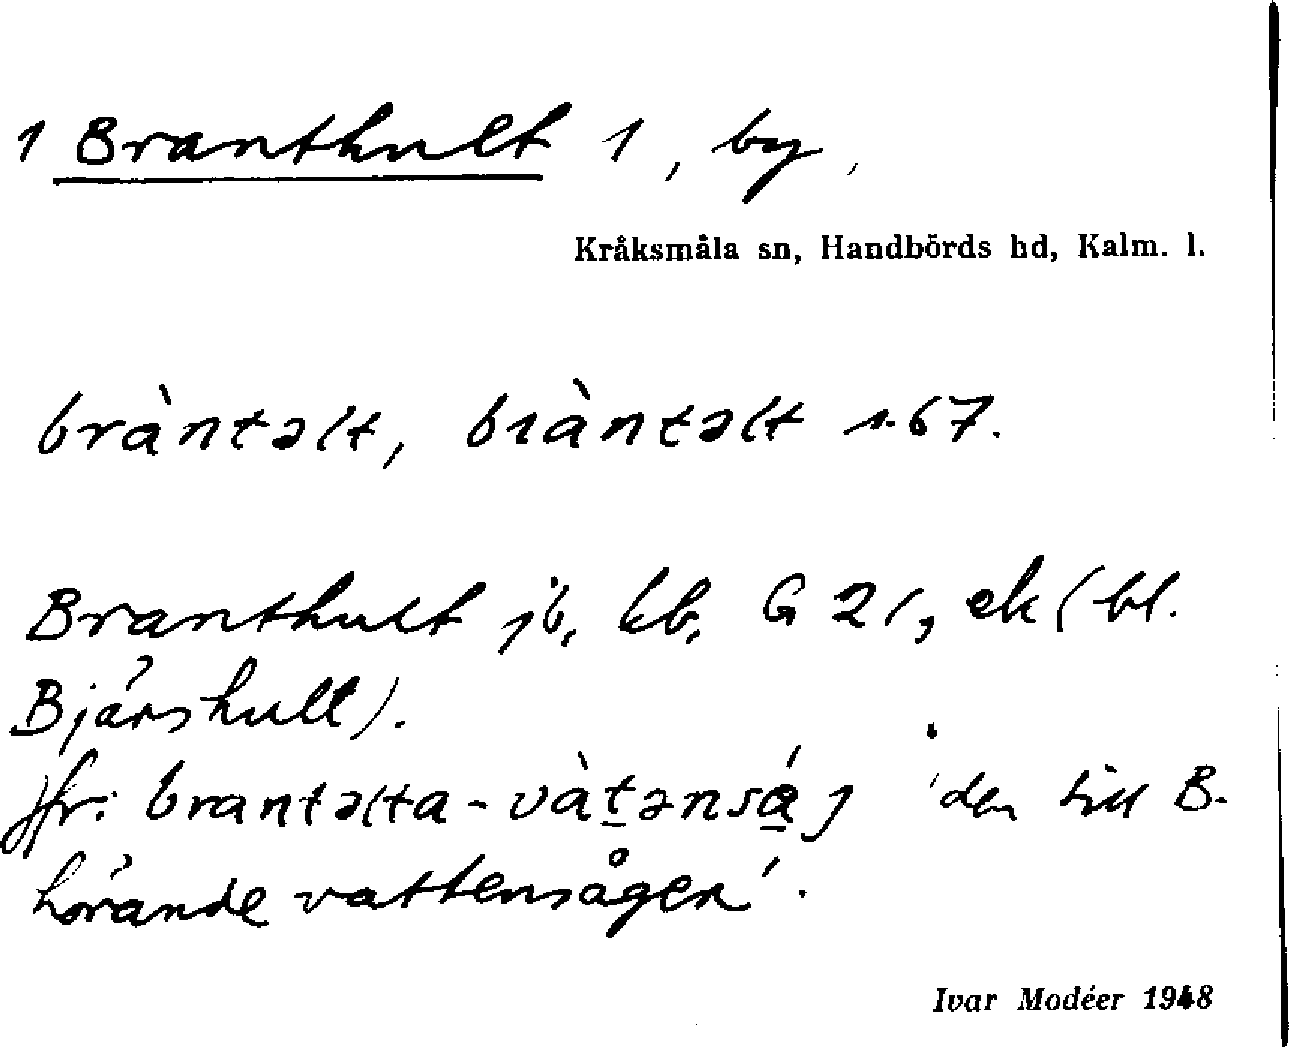 1 Branthult 1, by,
Kråksmåla sn, Handbörds hd, Kalm. l.
bràntəlt, bràntəlt s. 67.
Branthult jb, kb, G 21, ek (bl.
Bjärshult).
Jfr: brantəlta-vàtənság 'den till B.
hörande vattensågen'.
Ivar Modéer 1948